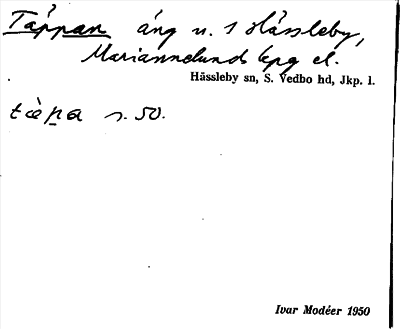 Täppan äng n. 1 Hässleby,
Mariannelunds kpg el.
Hässleby sn, S. Vedbo hd, Jkp. l.
tæ̀pa s. 50.
Ivar Modéer 1950